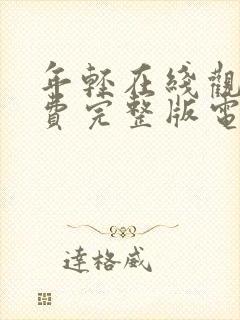 年輕在綫觀
費完整版電
達格威